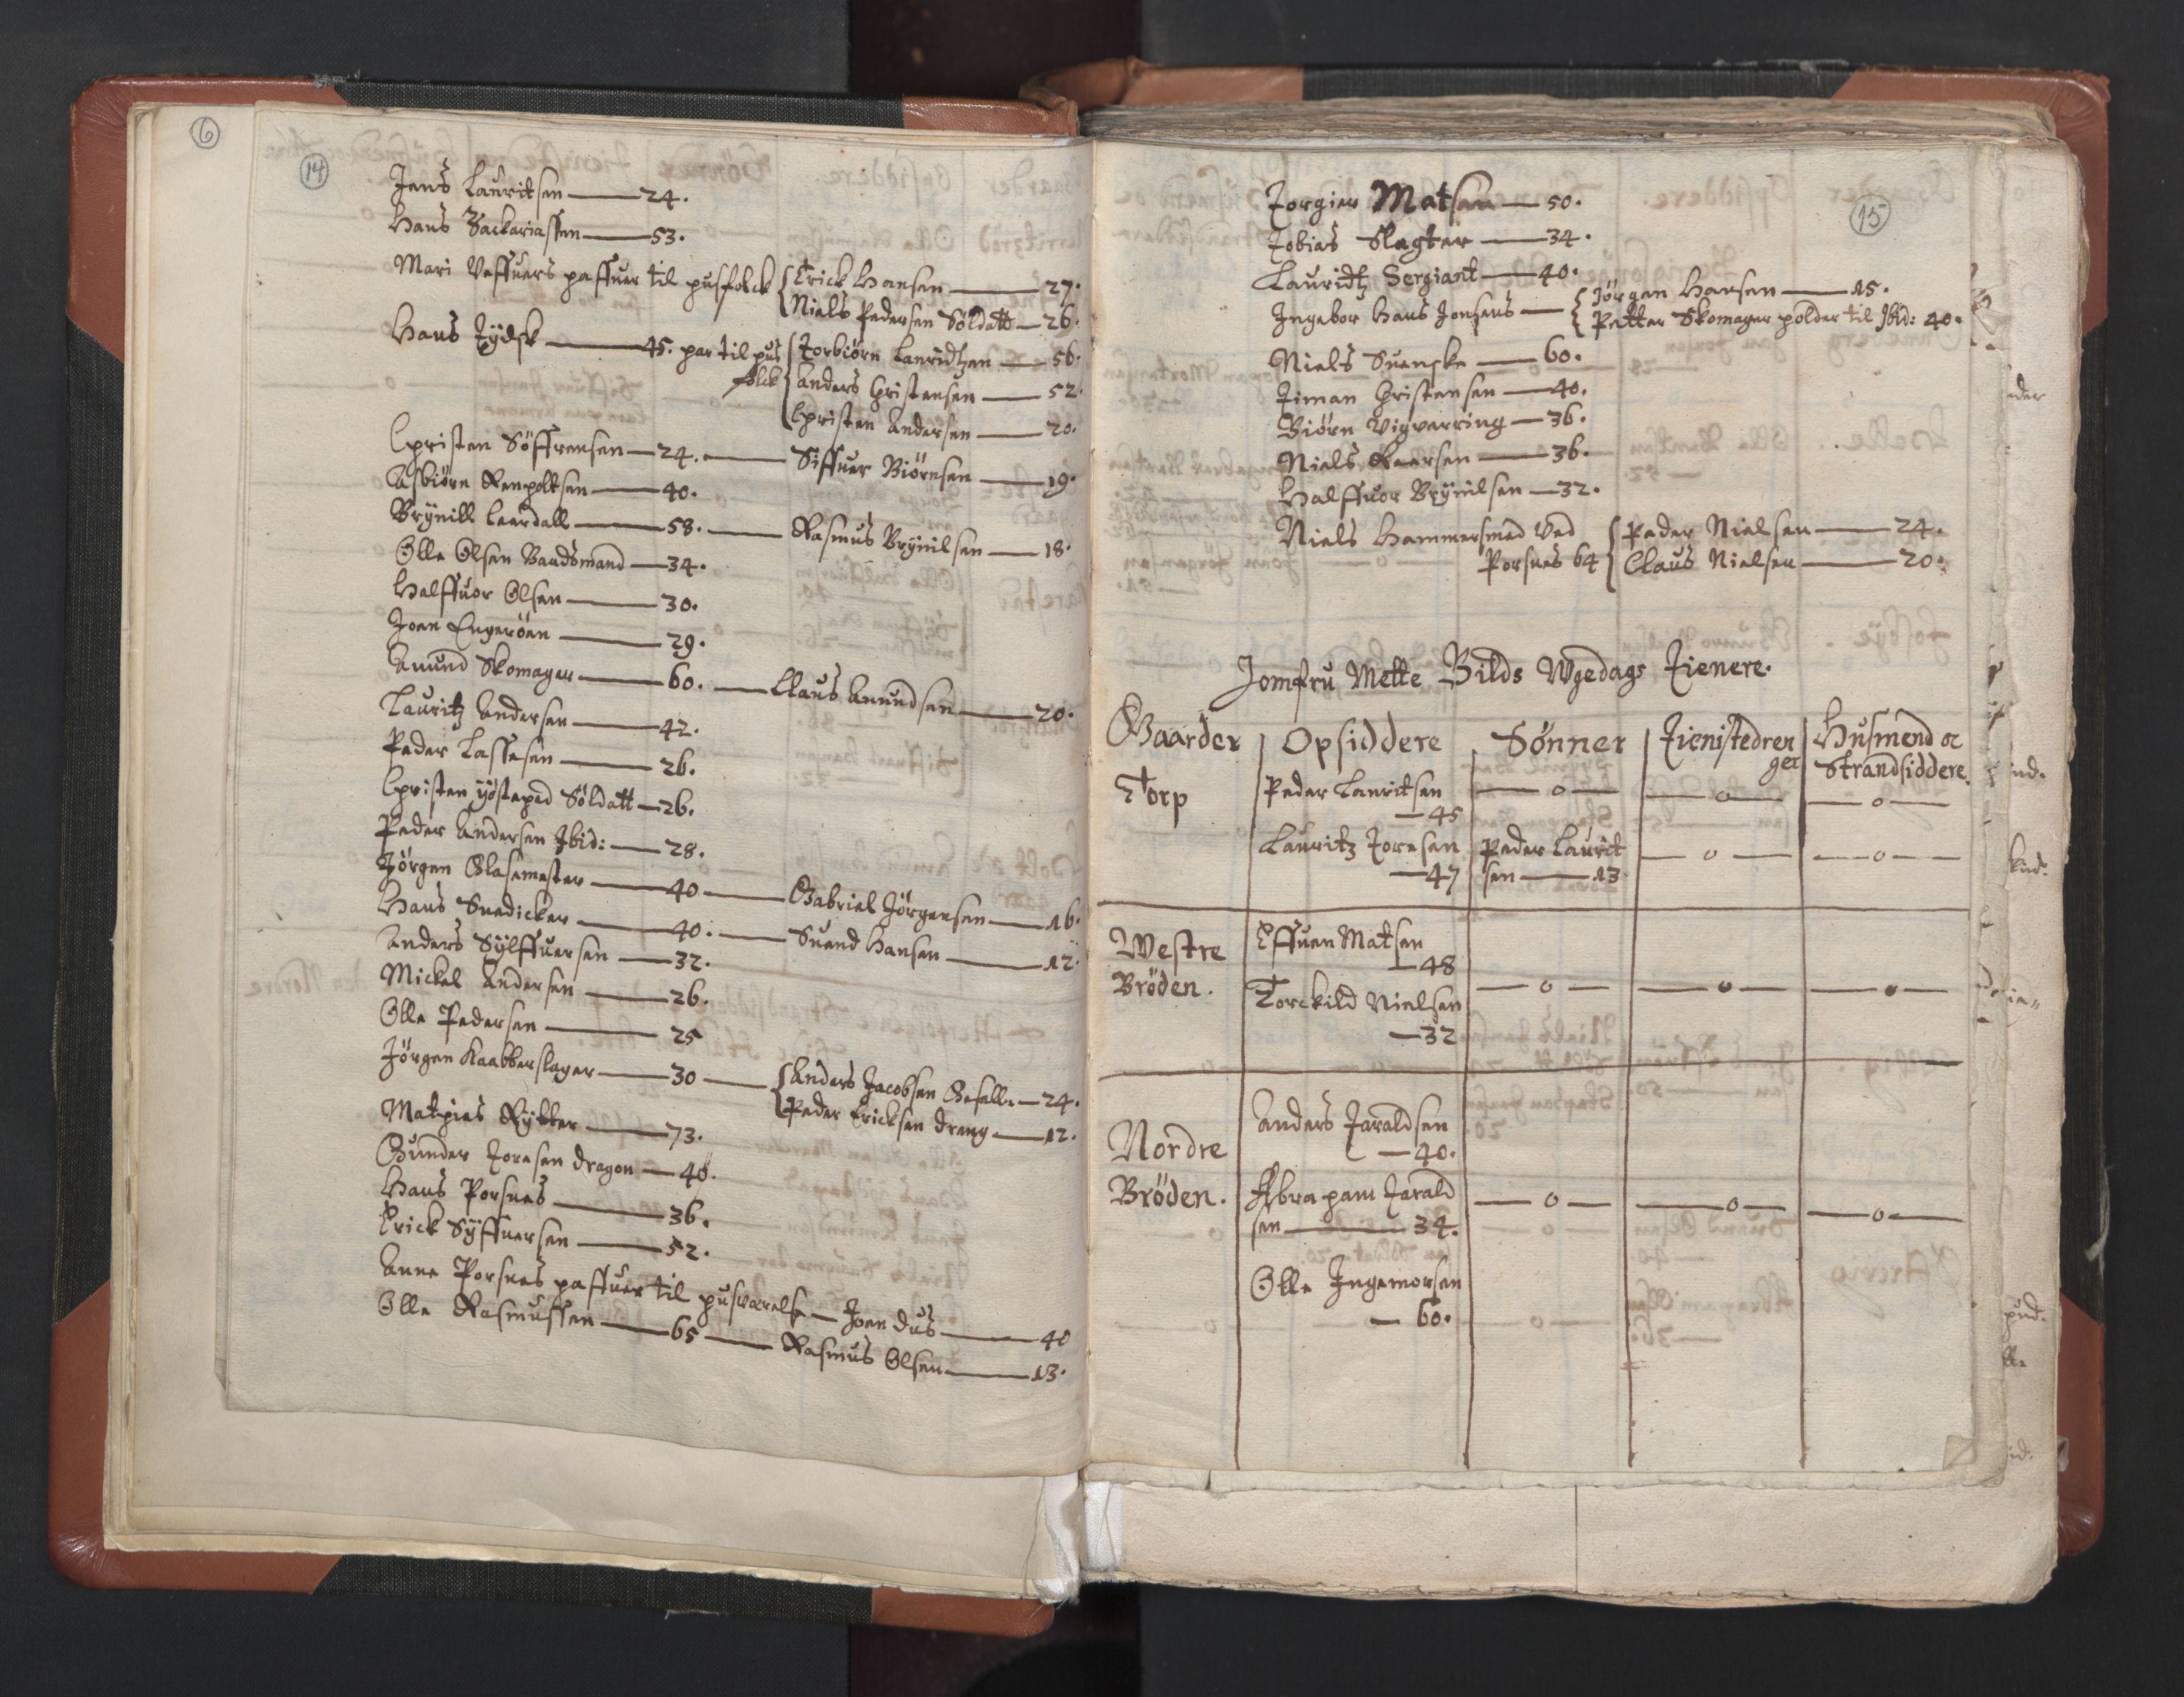 6
14
Jens Lauritsen — 24.
Hans Sackariassen — 53.
Mari Veffuers haffuer til husfolck { Erick Hansen — 27.
Niels Pedersen Söldatt — 26.
Hans Tÿdsk — 45. har til hus { Torbiörn Lauridtzen — 56.
folck { Anders Christensen — 52.
Christen Andersen — 20.
Christen Söffrensen — 24. — Siffuer Biörnsen — 19.
Asbiörn Renholtsen — 40.
Brÿnill Leerdall — 58. — Rasmus Brÿnilsen — 18.
Olle Olsen Baadsmand — 34.
Halffuor Olsen — 30.
Joen Engeröen — 29.
Anund Skomager — 60. — Claus Anundsen — 20.
Lauritz Andersen — 42.
Peder Lassesen — 26.
Christen Söldatt — 26.
Peder Andersen Ibid: — 28.
Jörgen Glasemester — 40 — Gabriel Jörgensen — 16.
Hans Snedicker — 40. — Suend Hansen — 12.
Anders Sÿlffuersen — 32.
Mickel Andersen — 26.
Olle Pedersen — 25
Jörgen Kaabberslager — 30 — { Anders Jacobsen Gesell — 24.
Peder Ericksen dreng — 12.
Mathies Rÿtter — 73.
Gunder Toresen dragon — 40.
Hans Porsnes — 36.
Erick Sÿffuersen — 52.
Anne Porsnes haffuer til husværelse — Joen dus — 40
Olle Rasmussen — 65 — Rasmus Olsen — 13.
15
Torgier Matsen — 50.
Tobias Slagter — 34.
Lauridtz Sergiant — 40.
Ingebor Hans Jensens — { Jörgen Hansen — 15.
Petter Skomager holder til Ibid: 40.
Niels Suenske — 60.
Timan Christensen — 40.
Biörn Vigværring — 36.
Niels Roersen — 36.
Halffuor Brÿnilsen — 32.
Niels Hammersmed Ved { Peder Nielsen — 24.
Porsnes 64 { Claus Nielsen — 20.
Jomfru Mette Bilds Wgedags Tienere.
Gaarder | Opsiddere | Sønner | Tienistedren | Husmend oc
ger | Strandsiddere.
Torp | Peder Lauritsen | — o — | — o — | — o —
— 45
Lauritz Toresen | Peder Laurit | — o — | — o —
— 47 | sen — 13
Westre | Effuen Matsen
— 48
Bröden. | Torckild Nielsen | — o — | — o — | — o —
— 32
Anders Jaraldsen
Nordre | — 40.
Bröden. | Abraham Jarald | — o — | — o — | — o —
sen — 34.
Olle Ingemorsen
— 60.